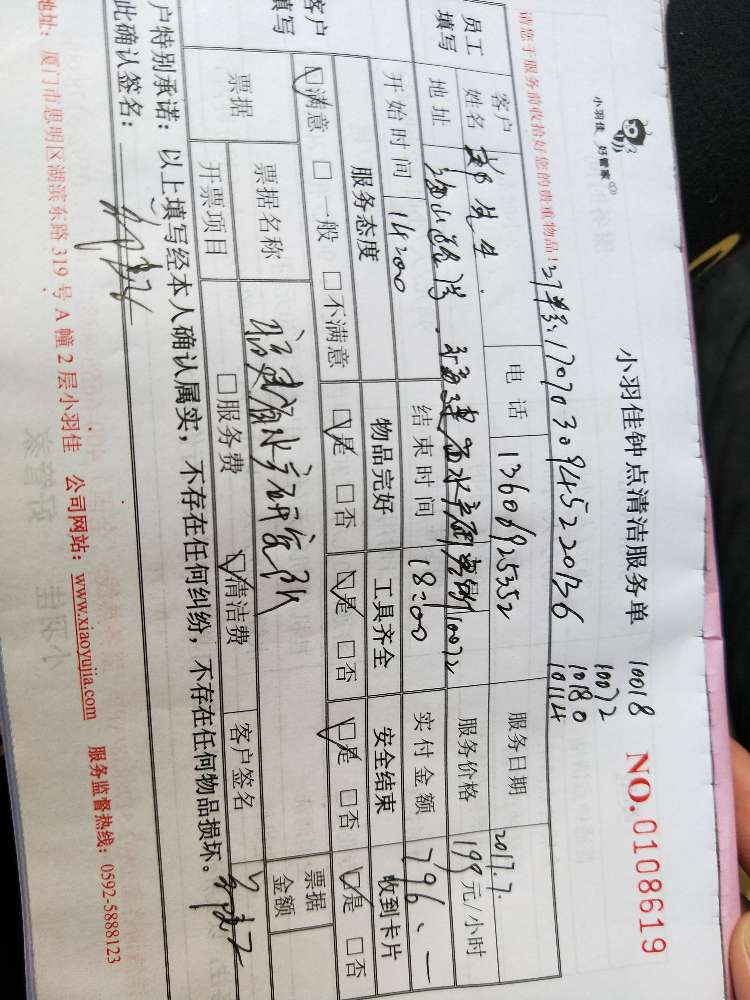 小羽佳 好管家
小羽佳钟点清洁服务单
10018
10072
10180
10114
NO.0108619
请您于服务前收拾好您的贵重物品！
1707030945220136
员工填写
客户姓名
郑先生
电话
13606925352
服务日期
2017.7.
地址
福建省水产研究所
服务价格
199元/小时
开始时间
14:00
结束时间
18:00
实付金额
796.
客户填写
服务态度
物品完好
工具齐全
安全结束
收到卡片
☑满意 □一般 □不满意
☑是 □否
☑是 □否
☑是 □否
☑是 □否
票据
票据名称
福建省水产研究所
票据金额
开票项目
□服务费
☑清洁费
客户签名
户特别承诺：以上填写经本人确认属实，不存在任何纠纷，不存在任何物品损坏。
此确认签名：
地址：厦门市思明区湖滨东路319号A幢2层小羽佳 公司网站：www.xiaoyujia.com 服务监督热线：0592-5888123